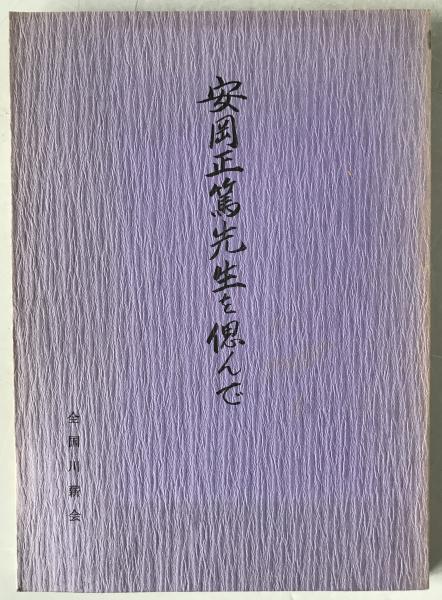 安岡正篤先生を偲んで
全国川薪会